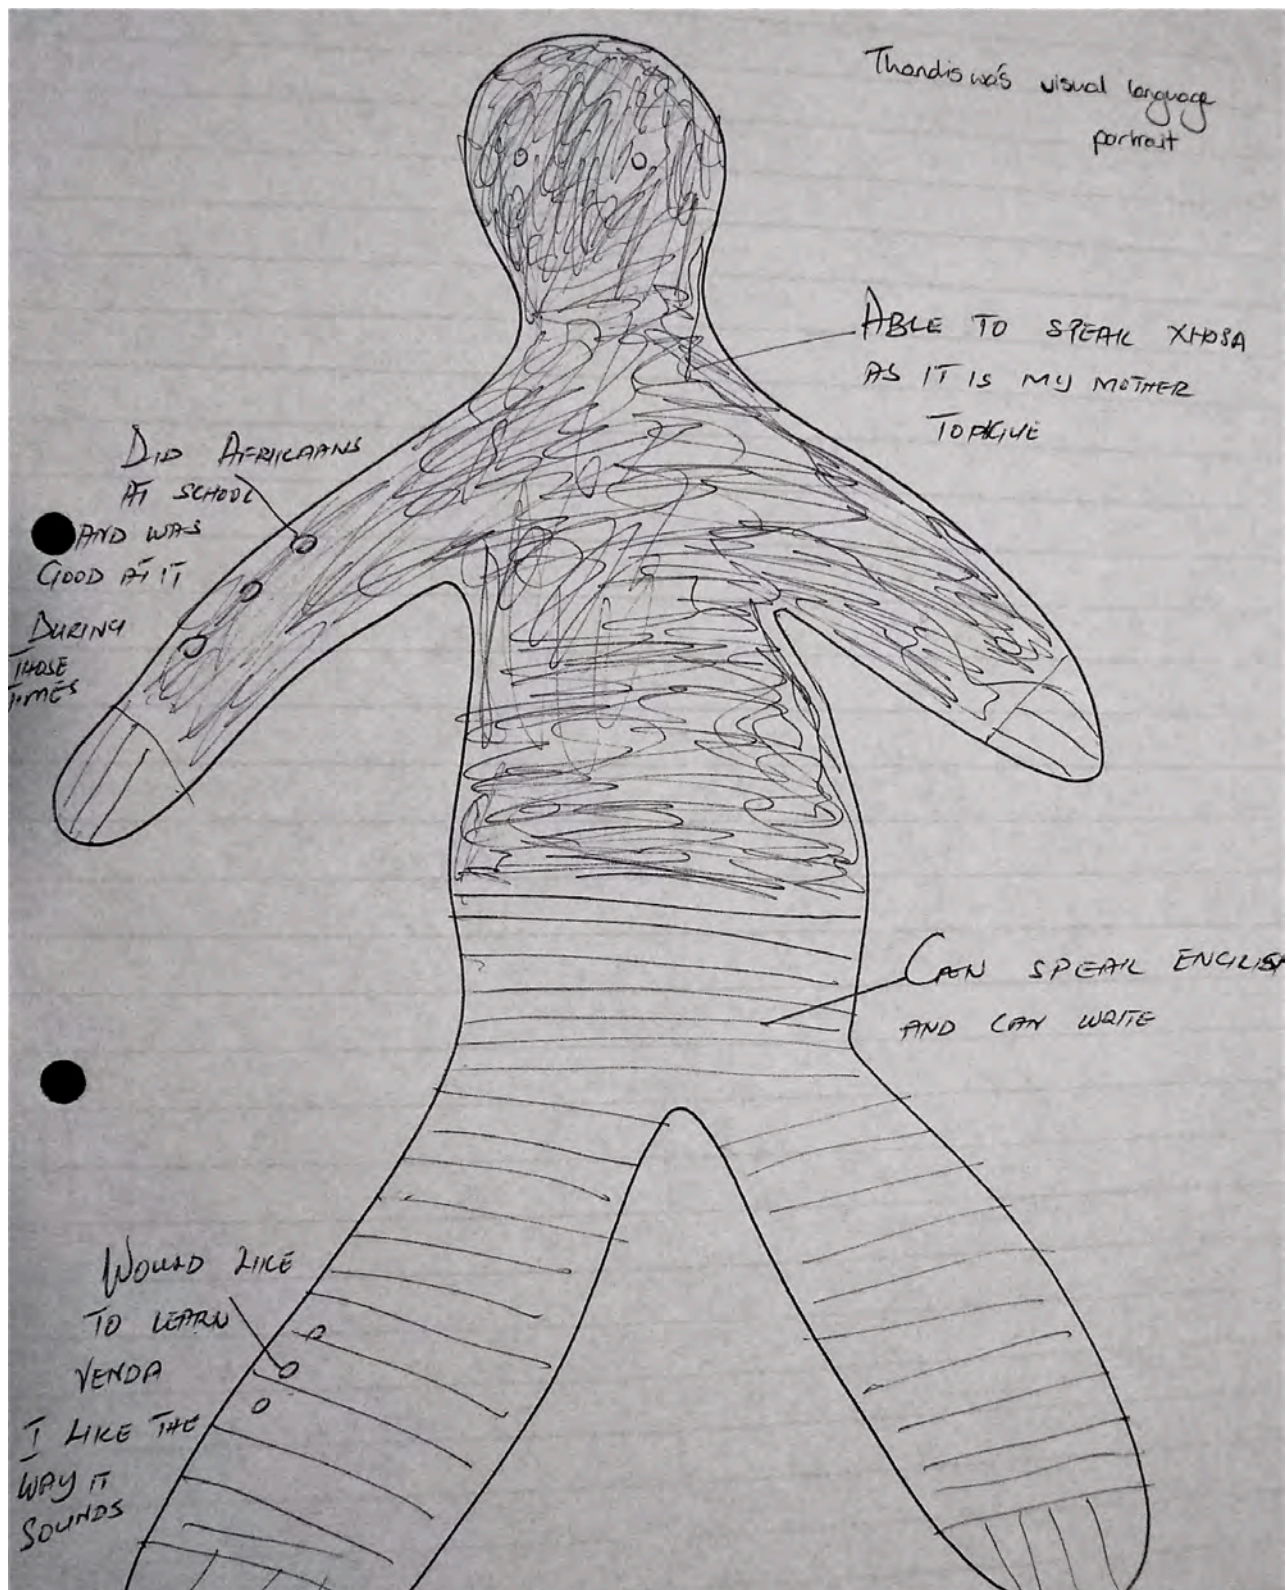 Thandiswa's visual language
portrait
ABLE TO SPEAK XHOSA
AS IT IS MY MOTHER
TONGUE
DID AFRIKAANS
AT SCHOOL
AND WAS
GOOD AT IT
DURING
THOSE
TIMES
CAN SPEAK ENGLISH
AND CAN WRITE
WOULD LIKE
TO LEARN
VENDA
I LIKE THE
WAY IT
SOUNDS